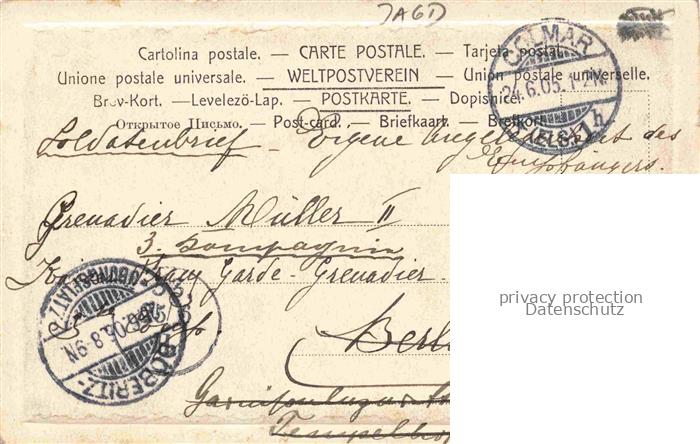 JAGD
Cartolina postale. — CARTE POSTALE. — Tarjeta postal.
Unione postale universale. — WELTPOSTVEREIN — Union postale universelle.
Brev-Kort. — Levelező-Lap. — POSTKARTE. — Dopisnice.
Открытое Письмо. — Post-card. — Briefkaart. — Brefkort.
COLMAR
24.6.05. 1-2N.
(ELS.) h
Soldatenbrief — Eigene Angelegenheit des
Empfängers.
Grenadier Müller II
3. Kompagnie
Franz Garde-Grenadier
Berl
DÖBERITZ-
ÜBUNGSPLATZ
8-9N
Garnisonlazarett
Tempelho
privacy protection
Datenschutz